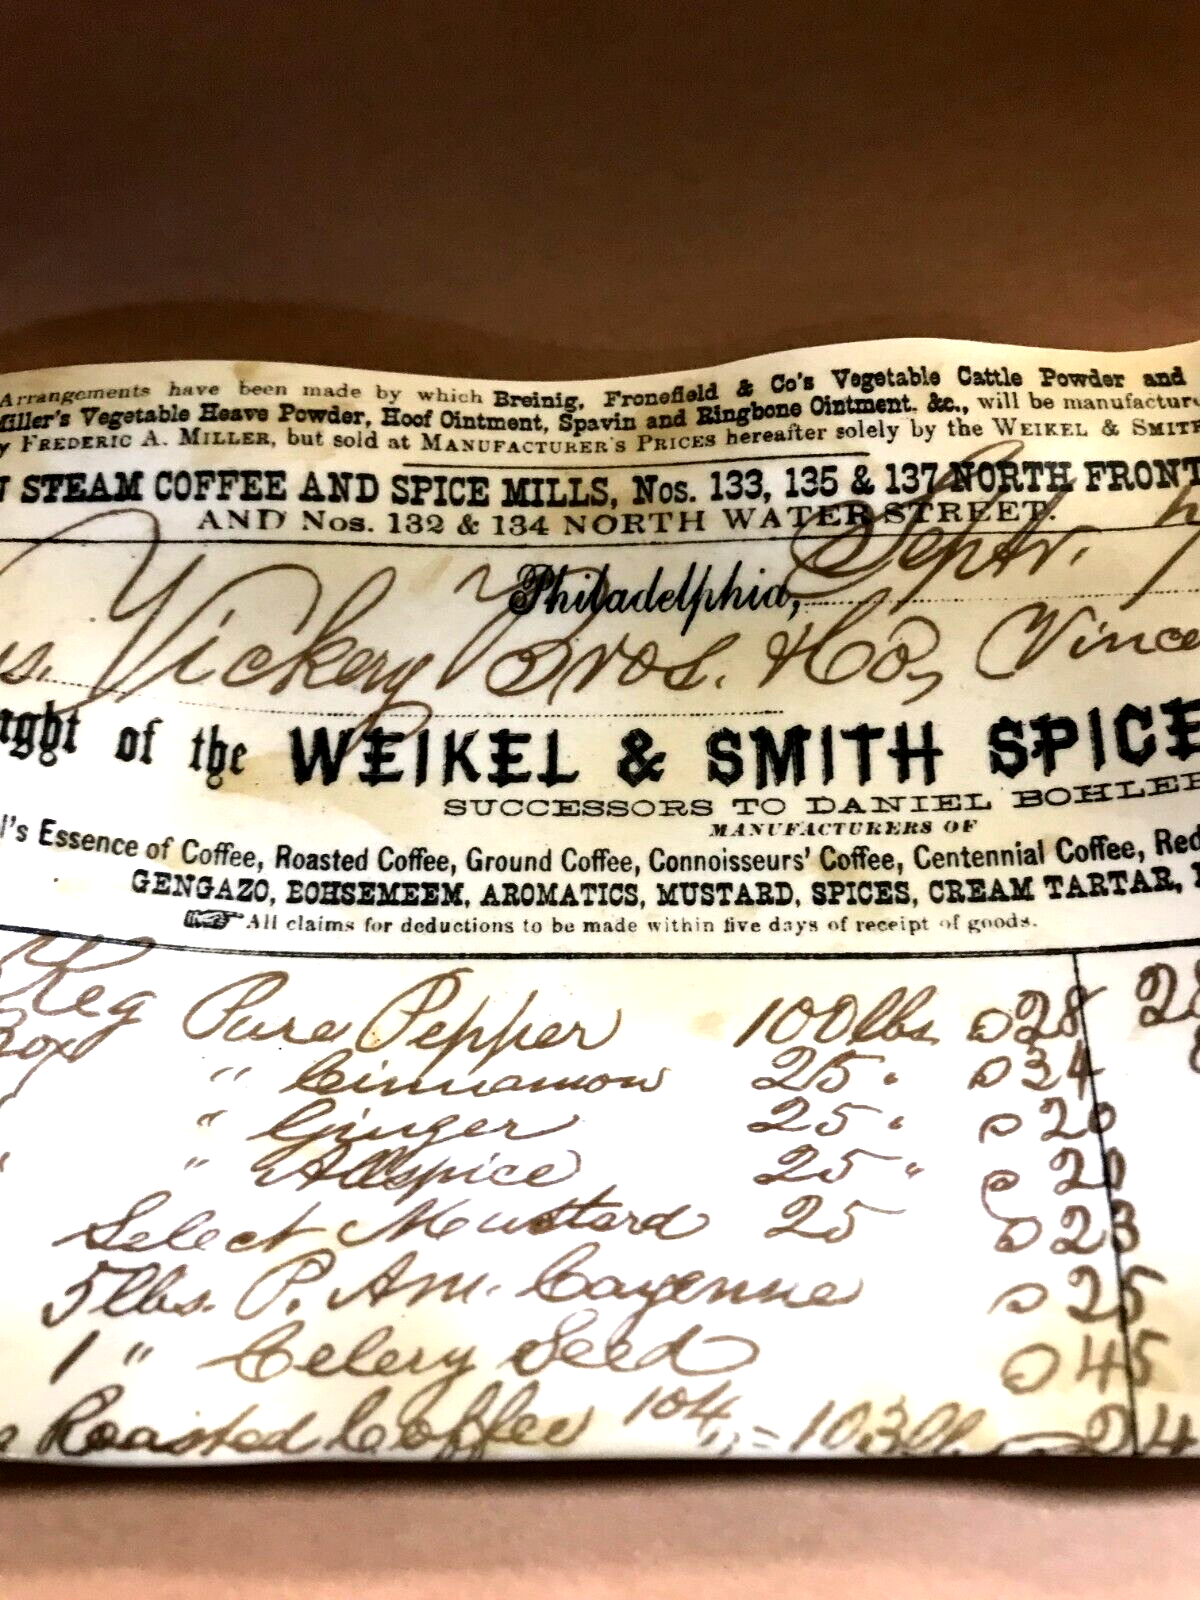 Arrangements have been made by which Breinig, Fronefield & Co's Vegetable Cattle Powder and
Miller's Vegetable Heave Powder, Hoof Ointment, Spavin and Ringbone Ointment, &c., will be manufactur
y FREDERIC A. MILLER, but sold at MANUFACTURER'S PRICES hereafter solely by the WEIKEL & SMITH
N STEAM COFFEE AND SPICE MILLS, Nos. 133, 135 & 137 NORTH FRONT
AND Nos. 132 & 134 NORTH WATER STREET.
Philadelphia, Septr.
s. Vickery Bros. & Co, Vince
ught of the WEIKEL & SMITH SPICE
SUCCESSORS TO DANIEL BOHLER
MANUFACTURERS OF
l's Essence of Coffee, Roasted Coffee, Ground Coffee, Connoisseurs' Coffee, Centennial Coffee, Red
GENGAZO, BOHSEMEEM, AROMATICS, MUSTARD, SPICES, CREAM TARTAR,
All claims for deductions to be made within five days of receipt of goods.
Keg Pure Pepper 100lbs @ 28 28
Box " Cinnamon 25 " @ 34
" Ginger 25 " @ 20
" " Allspice 25 " @ 20
Select Mustard 25 @ 23
5 lbs. P. Am. Cayenne @ 25
1 " Celery Seed @ 45
Roasted Coffee 104 = 103 lb @ 24